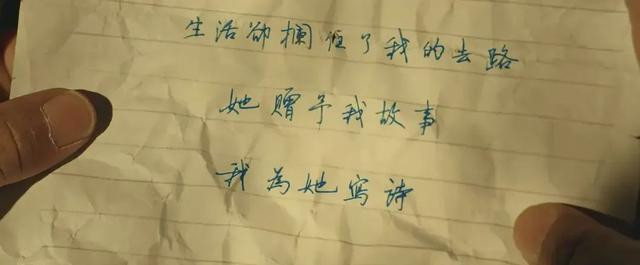 生活却拦住了我的去路
她赠予我故事
我为她写诗